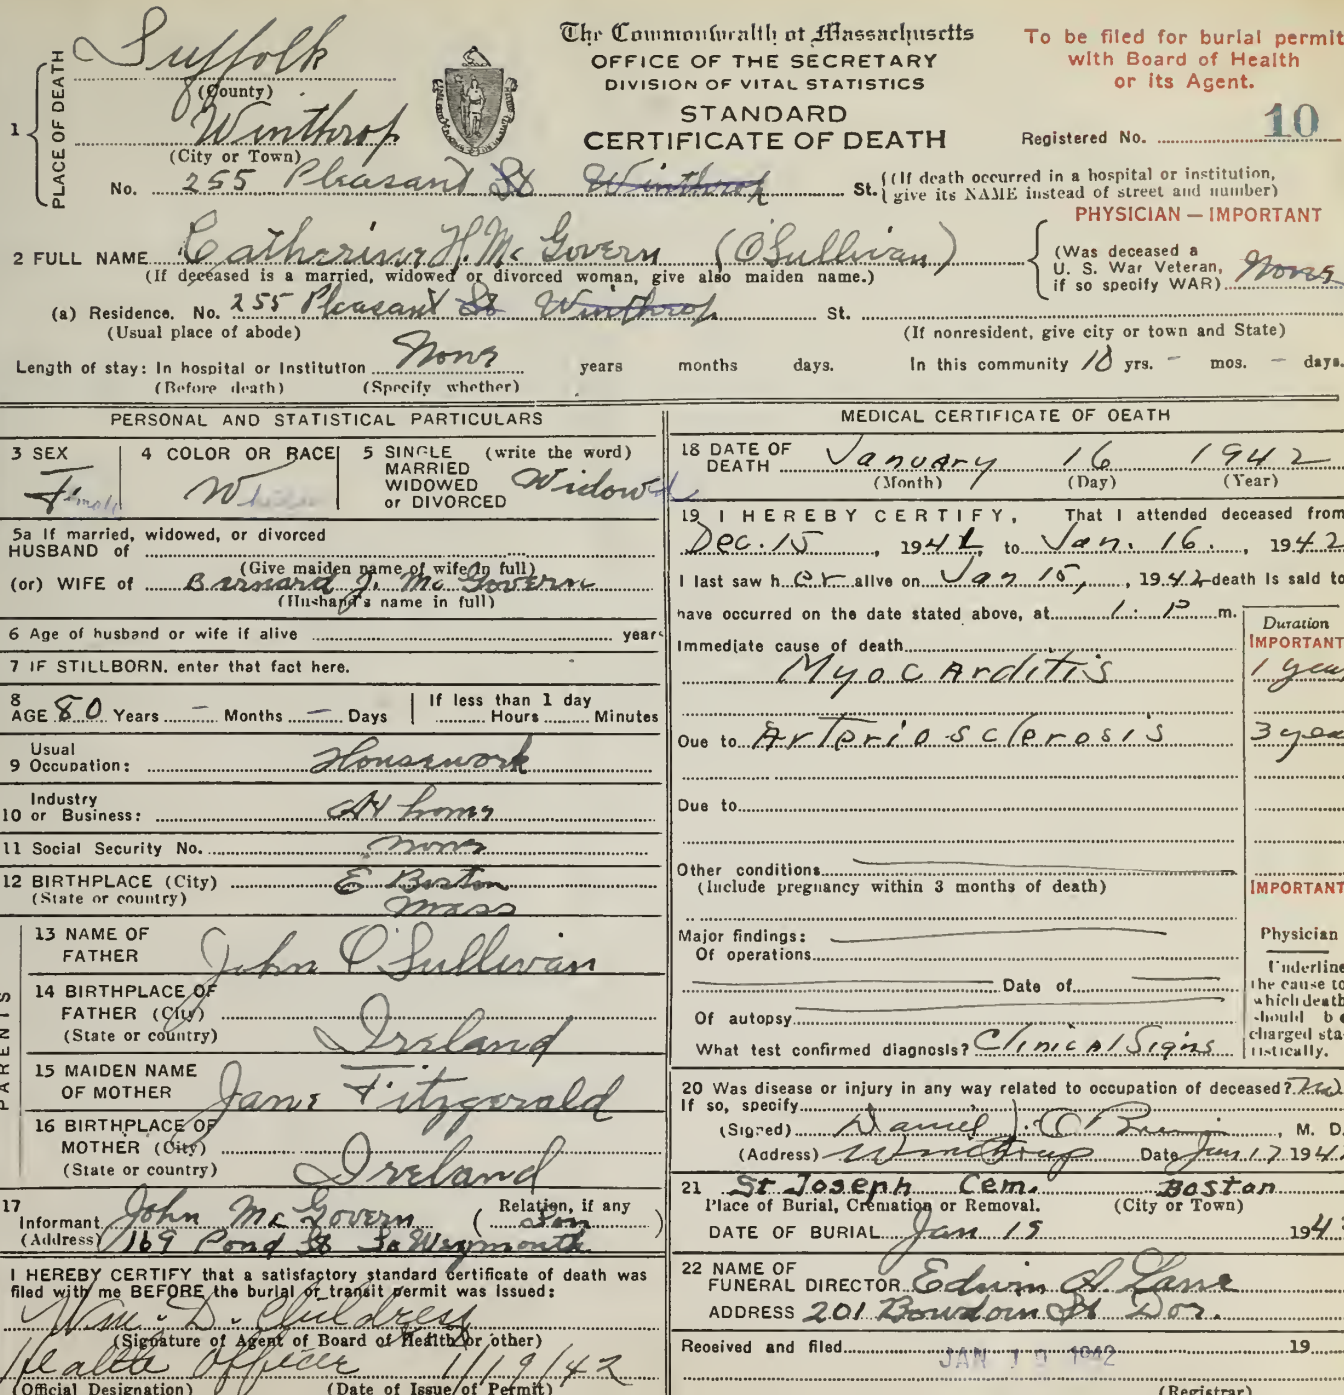 The Commonwealth of Massachusetts
OFFICE OF THE SECRETARY
DIVISION OF VITAL STATISTICS
STANDARD
CERTIFICATE OF DEATH
To be filed for burial permit
with Board of Health
or its Agent.
Registered No. 10
1 PLACE OF DEATH
Suffolk
(County)
Winthrop
(City or Town)
No. 255 Pleasant St Winthrop St. (If death occurred in a hospital or institution, give its NAME instead of street and number)
PHYSICIAN — IMPORTANT
2 FULL NAME Catherine H. Mc Govern (O'Sullivan)
(If deceased is a married, widowed or divorced woman, give also maiden name.)
(Was deceased a
U. S. War Veteran,
if so specify WAR) None
(a) Residence. No. 255 Pleasant St Winthrop St.
(Usual place of abode) (If nonresident, give city or town and State)
Length of stay: In hospital or Institution None years months days. In this community 10 yrs. - mos. - days.
(Before death) (Specify whether)
PERSONAL AND STATISTICAL PARTICULARS
3 SEX Female
4 COLOR OR RACE White
5 SINGLE MARRIED WIDOWED or DIVORCED (write the word) Widowed
5a If married, widowed, or divorced
HUSBAND of
(Give maiden name of wife in full)
(or) WIFE of Barnard J. Mc Govern
(Husband's name in full)
6 Age of husband or wife if alive years
7 IF STILLBORN, enter that fact here.
8 AGE 80 Years - Months - Days If less than 1 day Hours Minutes
9 Usual Occupation: Housework
10 Industry or Business: At home
11 Social Security No. none
12 BIRTHPLACE (City) E Boston
(State or country) Mass
PARENTS
13 NAME OF FATHER John O'Sullivan
14 BIRTHPLACE OF FATHER (City)
(State or country) Ireland
15 MAIDEN NAME OF MOTHER Jane Fitzgerald
16 BIRTHPLACE OF MOTHER (City)
(State or country) Ireland
17 Informant John Mc Govern (Relation, if any Son)
(Address) 169 Pond St So Weymouth
I HEREBY CERTIFY that a satisfactory standard certificate of death was
filed with me BEFORE the burial or transit permit was issued:
Wm. D. Childress
(Signature of Agent of Board of Health or other)
Health Officer 1/19/42
(Official Designation) (Date of Issue of Permit)
MEDICAL CERTIFICATE OF DEATH
18 DATE OF DEATH January 16 1942
(Month) (Day) (Year)
19 I HEREBY CERTIFY, That I attended deceased from
Dec. 15, 1941, to Jan. 16., 1942
I last saw h er alive on Jan 15, 1942 death is said to
have occurred on the date stated above, at 1: P m.
Duration
IMPORTANT
Immediate cause of death
Myocarditis 1 year
Due to Arteriosclerosis 3 yea
Due to
Other conditions
(Include pregnancy within 3 months of death)
IMPORTANT
Major findings:
Of operations
Date of
Of autopsy
What test confirmed diagnosis? Clinical Signs
Physician
Underline
the cause to
which death
should be
charged sta-
tistically.
20 Was disease or injury in any way related to occupation of deceased? No
If so, specify
(Signed) Daniel J. O'Brien, M. D.
(Address) Winthrop Date Jan 17 194
21 St Joseph Cem. Boston
Place of Burial, Cremation or Removal. (City or Town)
DATE OF BURIAL Jan 19 194
22 NAME OF FUNERAL DIRECTOR Edwin A. Lane
ADDRESS 201 Bowdoin St Dor.
Received and filed JAN 19 1942 19
(Registrar)